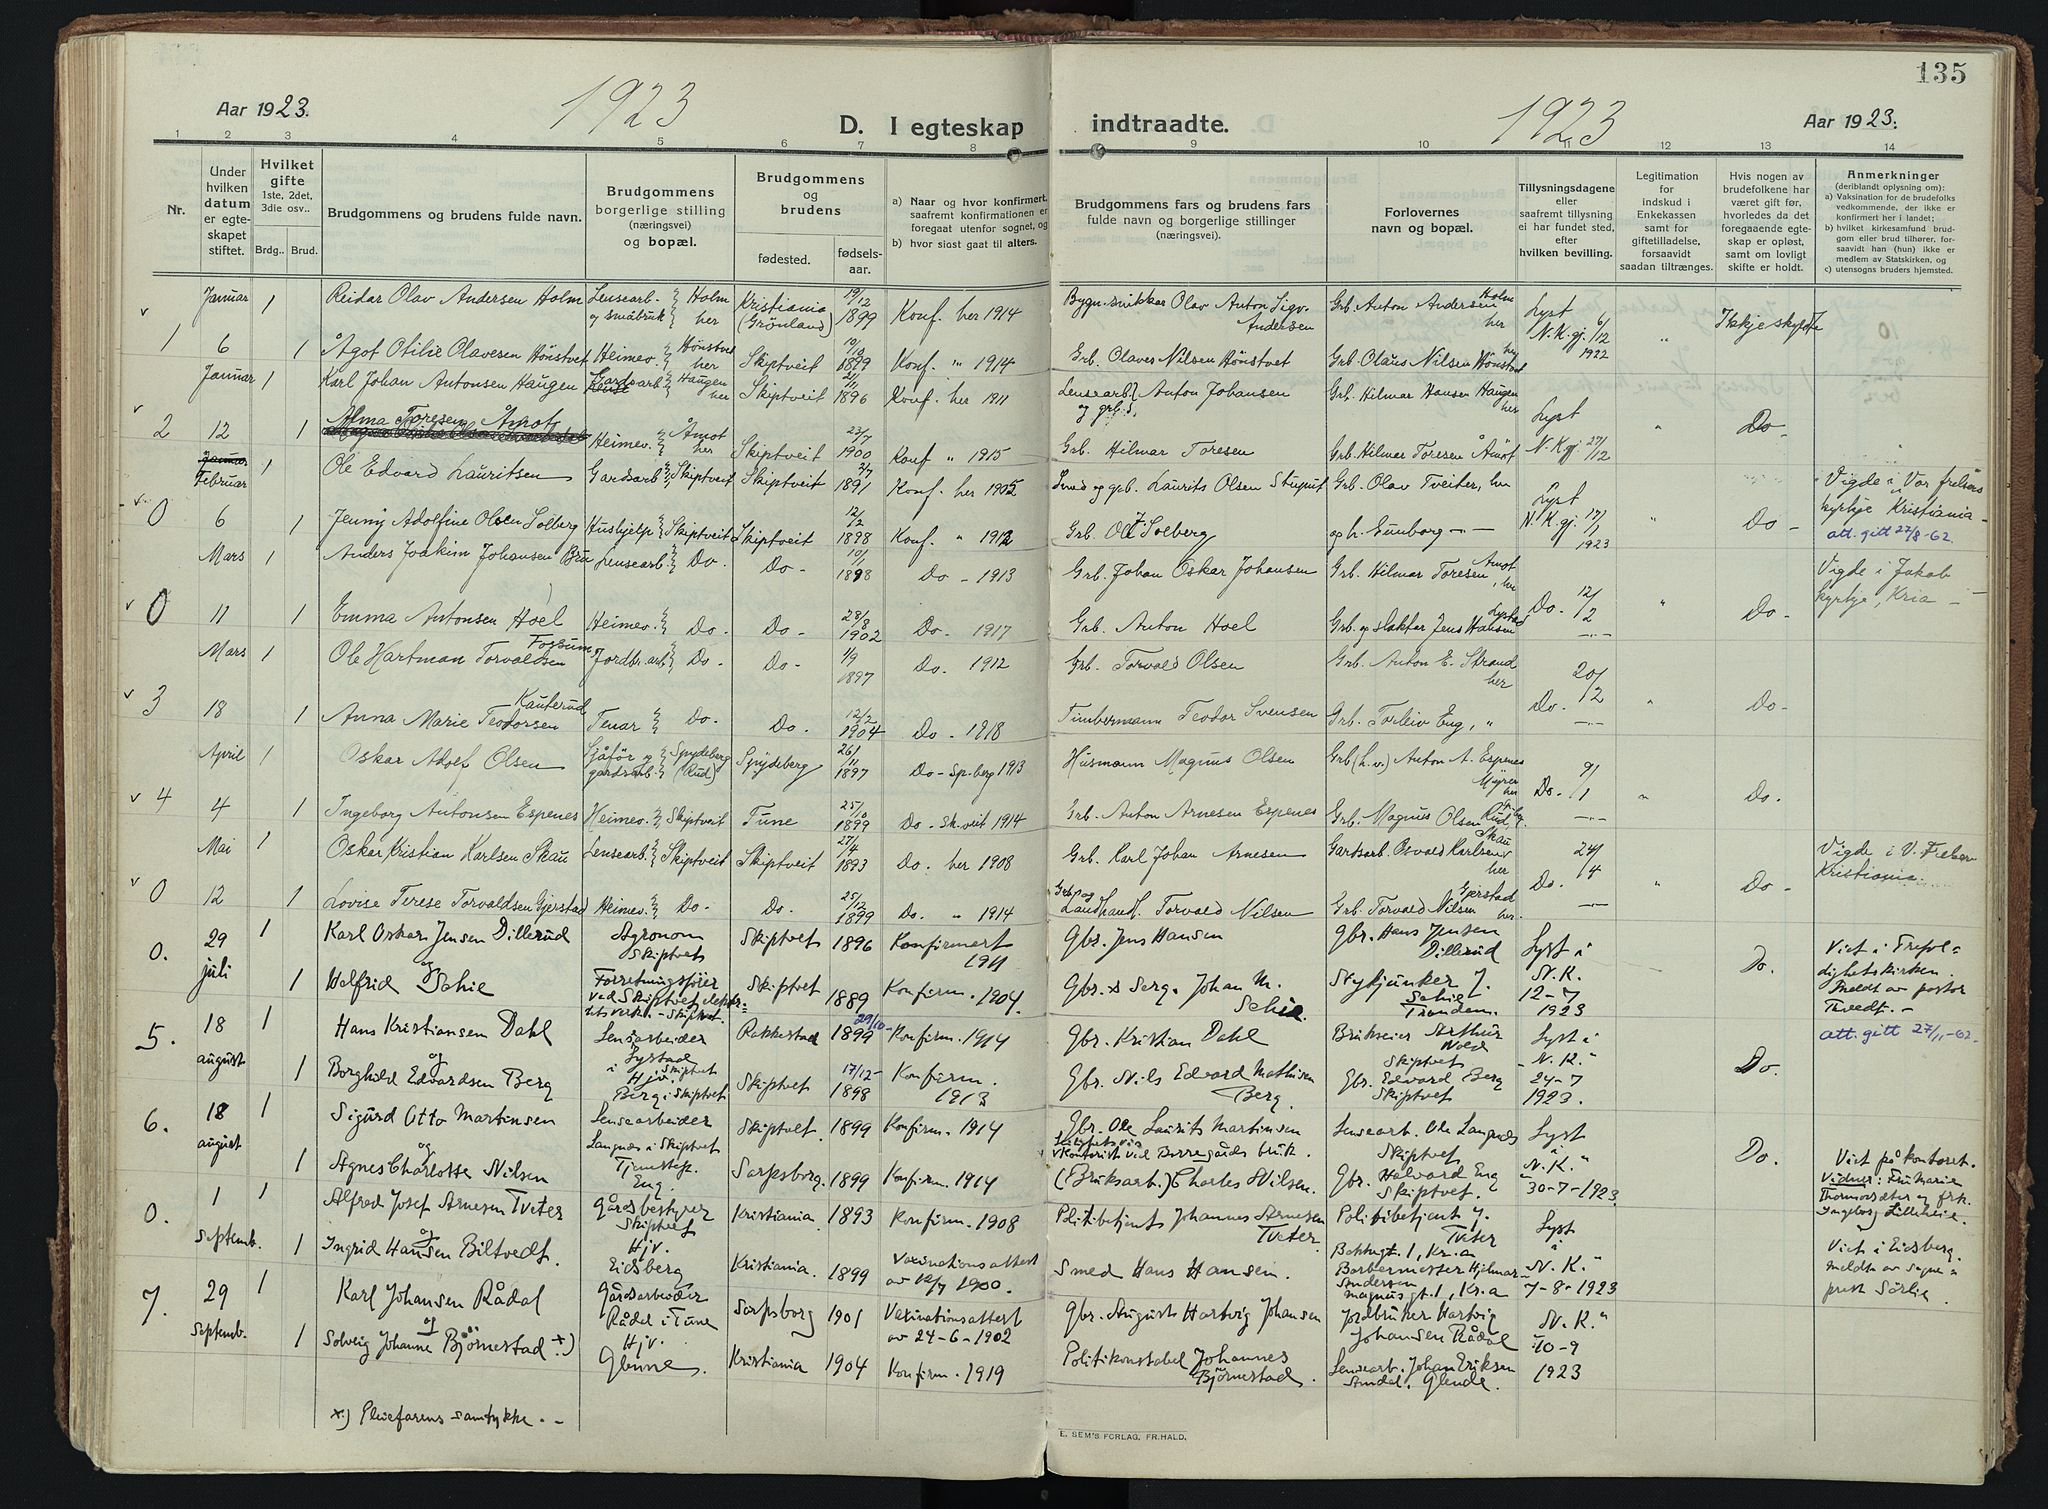 135
Aar 1923.
1923
D. I egteskap indtraadte.
1923
Aar 1923.
1 2 3 4 5 6 7 8 9 10 11 12 13 14
Nr.
Under hvilken datum er egteskapet stiftet.
Hvilket gifte 1ste, 2det, 3die osv..
Brdg.. Brud.
Brudgommens og brudens fulde navn.
Brudgommens borgerlige stilling (næringsvei) og bopæl.
Brudgommens og brudens
fødested.
fødsels-aar.
a) Naar og hvor konfirmert, saafremt konfirmationen er foregaat utenfor sognet, og
b) hvor sidst gaat til alters.
Brudgommens fars og brudens fars fulde navn og borgerlige stillinger (næringsvei).
Forlovernes navn og bopæl.
Tillysningsdagene eller saafremt tillysning ei har fundet sted, efter hvilken bevilling.
Legitimation for indskud i Enkekassen samt for giftetilladelse, forsaavidt saadan tiltrænges.
Hvis nogen av brudefolkene har været gift før, hvorledes da det foregaaende egteskap er opløst, samt om lovligt skifte er holdt.
Anmerkninger (deriblandt oplysning om):
a) Vaksination for de brudefolks vedkommende, der ikke er konfirmert her i landet;
b) hvilket kirkesamfund brudgom eller brud tilhører, forsaavidt han (hun) ikke er medlem av Statskirken, og
c) utensogns bruders hjemsted.
Januar 1 Reidar Olav Andersen Holm Lensearb. og småbruk Holm her Kristiania (Grönland) 19/12 1899 Konf. her 1914 Bygn.snikkar Olav Anton Sigv. Andersen Grb. Anton Andersen Holm her Lyst N.K.gj. 6/12 1922 " Ikkje skyldte
1 6 1 Ågot Otilie Olavesen Hönstvet Heimev. Hönstvet her Skiptveit 1899 Konf. " 1914 Grb. Olaves Nilsen Hönstvet Grb. Olaus Nilsen Hönstvet her
Januar 1 Karl Johan Antonsen Haugen Gardsarb. Haugen her Skiptveit 1896 Konf. her 1911 Lensearb. og grb. Anton Johansen Grb. Hilmar Hansen Haugen her Lyst
2 12 1 Alma Toresen Åmot Heimev. Åmot her Skiptveit 23/7 1900 Konf " 1915 Grb. Hilmar Toresen Grb. Hilmar Toresen Åmot N.K.gj. 27/12 " Do
Februar 1 Ole Edvard Lauritsen Gardsarb. Skiptveit Skiptveit 1891 Konf. her 1905 Smed og grb. Laurits Olsen Stuput Grb. Olav Tveiter, her Lyst Vigde i Vor frelsers
0 6 1 Jenny Adolfine Olsen Solberg Hushjelp Skiptveit Skiptveit 12/2 1898 Konf. " 1912 Grb. Ole J. Solberg og h. Gunborg - N.K.gj. 17/1 1923 " Do - kyrkje Kristiania -
att. gitt 27/8-62.
Mars 1 Anders Joakim Johansen Bru Lensearb. Do. Do - 10/1 1898 Do - 1913 Grb. Johan Oskar Johansen Grb. Hilmar Toresen Åmot, her Vigde i Jakob
0 11 1 Emma Antonsen Hoel Heimev. Do. Do - 28/8 1902 Do - 1917 Grb. Anton Hoel Grb. og slakter Jens Hansen Lystad Do. 12/2 " Do - kyrkje, Kria -
Mars 1 Ole Hartman Torvaldsen Fossum Jordbr.arb. Do. Do - 1/9 1897 Do. 1912 Grb. Torvald Olsen Grb. Anton E. Strand her
3 18 1 Anna Marie Teodorsen Kauterud Tenar Do. Do. 12/2 1904 Do - 1918 Timbermann Teodor Svensen Grb. Torleiv Eng, " Do. 20/2 " Do-
April 1 Oskar Adolf Olsen Sjåför og gardsarb. Spydeberg (Rud) Spydeberg 26/11 1897 Do - Sp.berg 1913 Husmann Magnus Olsen Grb. (h.v.) Anton A. Espenes Myrer her
4 4 1 Ingeborg Antonsen Espenes Heimev. Skiptveit Tune 25/10 1899 Do - Sk.veit 1914 Grb. Anton Arnesen Espenes Grb. Magnus Olsen Rud, Do. 9/1 " Do.
Mai 1 Oskar Kristian Karlsen Skau Lensearb. Skiptveit Skiptveit 27/4 1893 Do. her 1908 Grb. Karl Johan Arnesen Gardsarb. Osvald Karlsen Skau her Vigde i V. Frelser
0 12 1 Lovise Terese Torvaldsen Gjerstad Heimev. Do. Do. 25/12 1899 Do. " 1914 Grb. og Landhandl. Torvald Nilsen Grb. Torvald Nilsen Gjerstad her. Do. 24/4 " Do - Kristiania.
0. 29 juli 1 Karl Oskar Jensen Dillerud Agronom Skiptvet Skiptvet 1896 Konfirmert 1911 Gbr. Jens Hansen Gbr. Hans Jensen Dillerud Lyst i N.K. 12-7 1923 Do. Viet i Trefoldighetskirken. Meldt av pastor Tvedt. -
og
1 Helfrid Schie Forretningsförer ved Skiptvet elektr. - Skiptvet. Skiptvet 1889 Konfirm. 1904. Gbr. & Serg. Johan M. Schie. Nybjunker J. Schie Trondem.
5. 18 august 1 Hans Kristiansen Dahl Lensarbeider Lystad i Skiptvet Rakkestad 29/10 - 1899 Konfirm. 1914 Gbr. Kristian Dahl Brukseier Arthur Vold Skiptvet Lyst i N.K. " 24-7 1923. Do. att. gitt 27/11-62.
og
1 Borghild Edvardsen Berg Hjv. Berg i Skiptvet Skiptvet 17/12- 1898 Konfirm. 1913 Gbr. Nils Edvard Mathisen Berg. Gbr. Edvard Berg Skiptvet
6. 18 august 1 Sigurd Otto Martinsen Lensearbeider Langnæs i Skiptvet Skiptvet 1899 Konfirm. 1914 Gbr. Ole Laurits Martinsen Lensearb. Ole Langnes Skiptvet Lyst i N.K. " 30-7-1923 Do. Viet på kontoret.
og
1 Agnes Charlotte Nilsen Tjenestep. Eng. Sarpsborg. 1899 Konfirm. 1914 ved Borregaards bruk. (Bruksarb.) Charles Nilsen. Gbr. Halvard Eng Skiptvet. Vidner: Fru Marie Thormodsæter og frk. Ingeborg Lilleheie.
0. 1 septemb. 1 Alfred Josef Arnesen Tveter Gårdsbestyrer Skiptvet Kristiania. 1893 Konfirm. 1908 Politibetjent Johannes Arnesen Tveter. Politibetjent J. Tveter 1, Kr.a Lyst i N.K. " 7-8-1923 Viet i Eidsberg. meldt av sogneprest Sörlie.
og
1 Ingrid Hansen Biltvedt. Hjv. Eidsberg Kristiania. 1899 Vaxinationsattest av 12/7 1900. Smed Hans Hansen. Barbermester Hjelmar Andersen Magnusgt. 1, Kr.a
7. 29 septemb. 1 Karl Johansen Rådal Gårdsarbeider Rådal i Tune Sarpsborg 1901 Vaxinationsattest av 24-6-1902 Gbr. August Hartvig Johansen Jordbruker Hartvig Johansen Rådal N.K. " 10-9 1923
og
1 Solveig Johanne Björnestad *) Hjv. Glenne. Kristiania 1904 Konfirm. 1919 Politikonstabel Johannes Björnestad. Lensearb. Johan Eriksen Glende.
*) Pleiefarens samtykke. -
E. SEM'S FORLAG, FR.HALD.